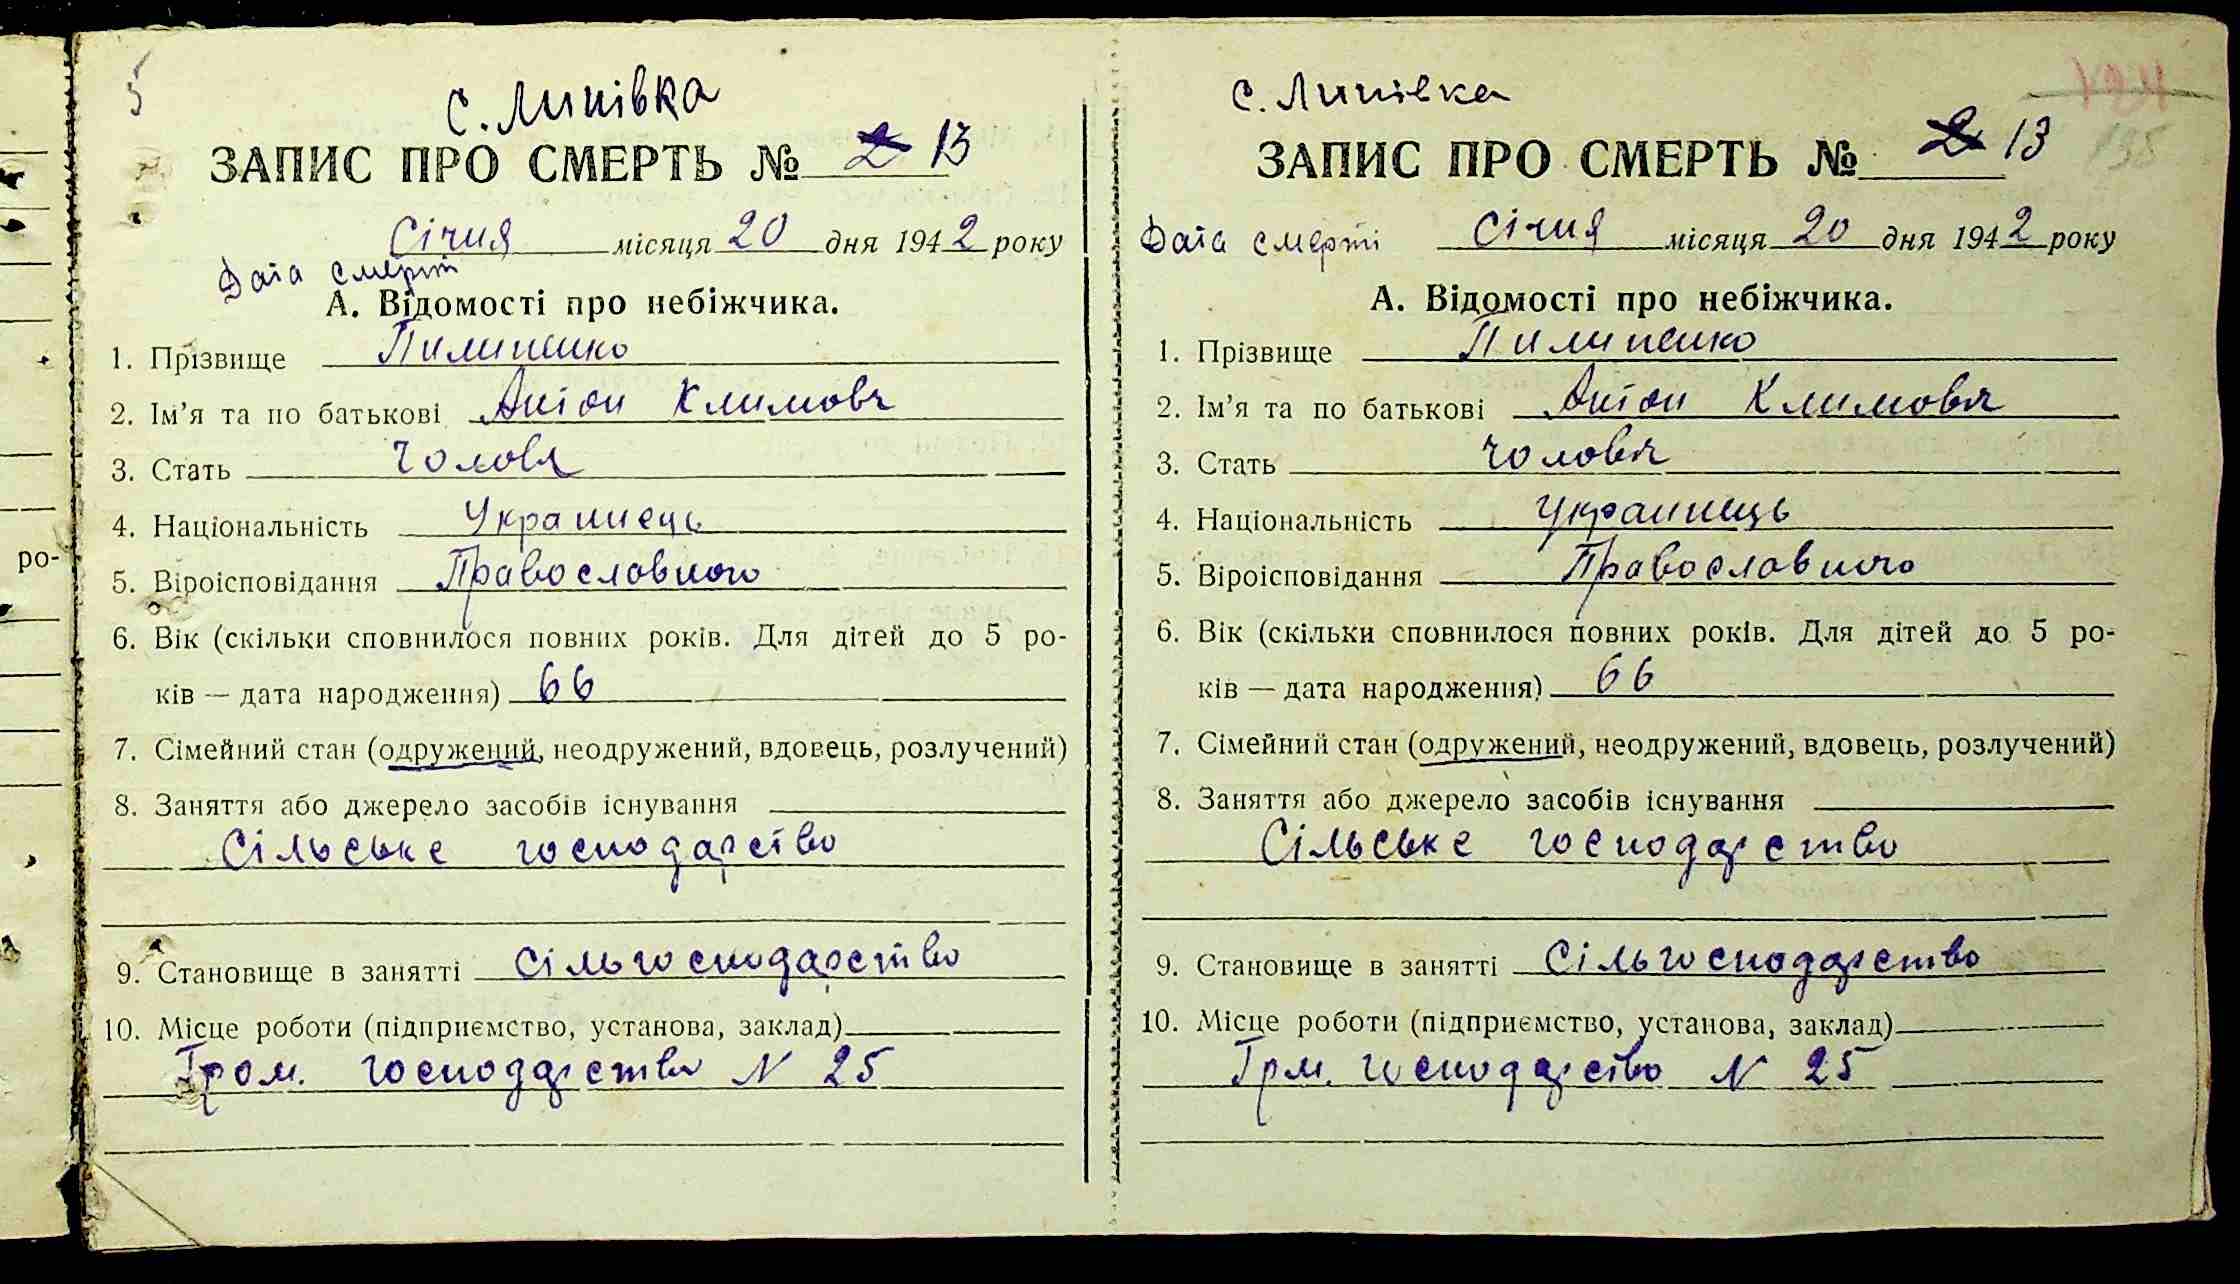 5
с. Липівка
ЗАПИС ПРО СМЕРТЬ № 2 13
Січня місяця 20 дня 1942 року
Дата смерті
А. Відомості про небіжчика.
1. Прізвище Пилипенко
2. Ім’я та по батькові Антон Климовя
3. Стать чоловя
4. Національність Украинець
5. Віроісповідання Православного
6. Вік (скільки сповнилося повних років. Для дітей до 5 ро-
ків — дата народження) 66
7. Сімейний стан (одружений, неодружений, вдовець, розлучений)
8. Заняття або джерело засобів існування
Сільське господарство
9. Становище в занятті сільгосподарство
10. Місце роботи (підприємство, установа, заклад)
Гром. господарство N 25
ро-
с. Липівка
124
195
ЗАПИС ПРО СМЕРТЬ № 2 13
Дата смерті Січня місяця 20 дня 1942 року
А. Відомості про небіжчика.
1. Прізвище Пилипенко
2. Ім’я та по батькові Антон Климовя
3. Стать чоловя
4. Національність Украинець
5. Віроісповідання Православного
6. Вік (скільки сповнилося повних років. Для дітей до 5 ро-
ків — дата народження) 66
7. Сімейний стан (одружений, неодружений, вдовець, розлучений)
8. Заняття або джерело засобів існування
Сільське господарство
9. Становище в занятті сільгосподарство
10. Місце роботи (підприємство, установа, заклад)
Грм. господарство N 25